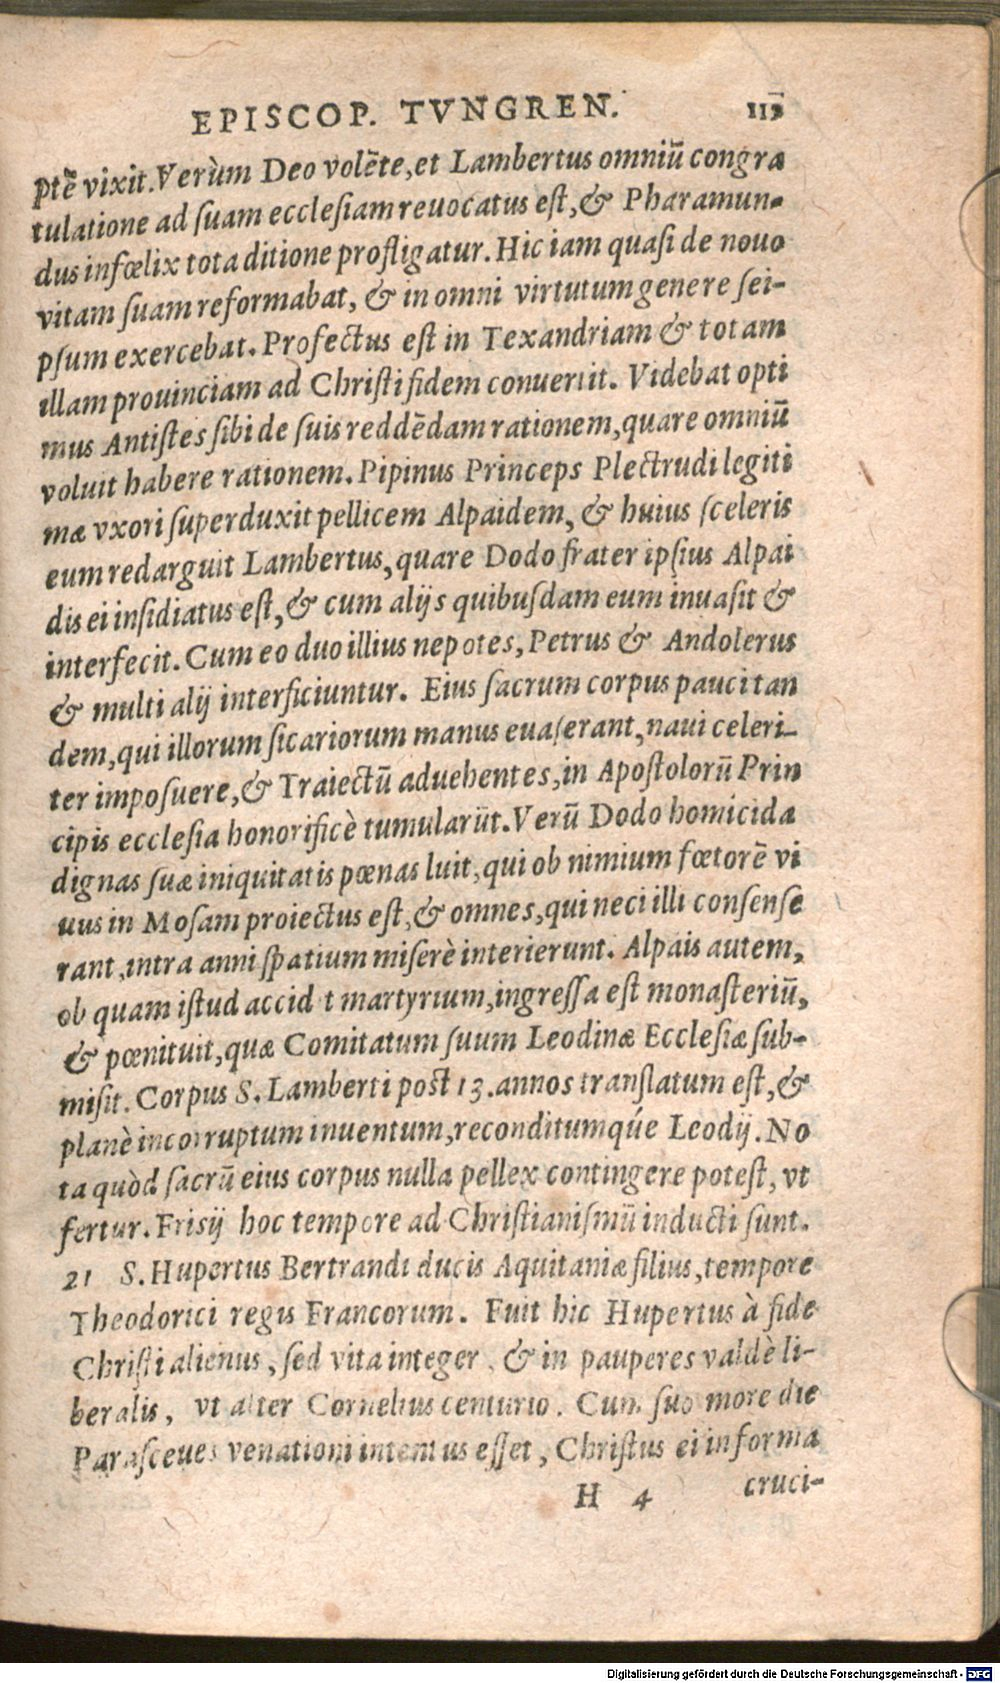 EPISCOP. TVNGREN.
ptẽ vixit. Verùm Deo volẽte, et Lambertus omniũ congra
tulatione ad ſuam eccleſiam reuocatus eſt, & Pharamun-
dus infœlix tota ditione profligatur. Hic iam quaſi de nouo
vitam ſuam reformabat, & in omni virtutum genere ſei-
pſum exercebat. Profectus eſt in Texandriam & totam
illam prouinciam ad Chriſti fidem conuertit. Videbat opti
mus Antiſtes ſibi de ſuis reddẽdam rationem, quare omniũ
voluit habere rationem. Pipinus Princeps Plectrudi legiti
mæ vxori ſuperduxit pellicem Alpaidem, & huius ſceleris
eum redarguit Lambertus, quare Dodo frater ipſius Alpai
dis ei inſidiatus eſt, & cum alijs quibuſdam eum inuaſit &
interfecit. Cum eo duo illius nepotes, Petrus & Andolerus
& multi alij interficiuntur. Eius ſacrum corpus pauci tan
dem, qui illorum ſicariorum manus euaſerant, naui celeri-
ter impoſuere, & Traiectũ aduehentes, in Apoſtolorũ Prin
cipis eccleſia honorificè tumularũt. Verũ Dodo homicida
dignas ſuæ iniquitatis pœnas luit, qui ob nimium fœtorẽ vi
uus in Moſam proiectus eſt, & omnes, qui neci illi conſenſe
rant, intra anni ſpatium miſerè interierunt. Alpais autem,
ob quam iſtud accidit martyrium, ingreſſa eſt monaſteriũ,
& pœnituit, quæ Comitatum ſuum Leodinæ Eccleſiæ ſub-
miſit. Corpus S. Lamberti poſt 13. annos tranſlatum eſt, &
planè incorruptum inuentum, reconditumqúe Leodij. No
ta quòd ſacrũ eius corpus nulla pellex contingere poteſt, vt
fertur. Friſij hoc tempore ad Chriſtianiſmũ inducti ſunt.
21 S. Hupertus Bertrandi ducis Aquitaniæ filius, tempore
Theodorici regis Francorum. Fuit hic Hupertus à fide
Chriſti alienus, ſed vita integer, & in pauperes valdè li-
beralis, vt alter Cornelius centurio. Cum ſuo more die
Paraſceues venationi intentus eſſet, Chriſtus ei in forma
H 4 cruci-
Digitalisierung gefördert durch die Deutsche Forschungsgemeinschaft - DFG